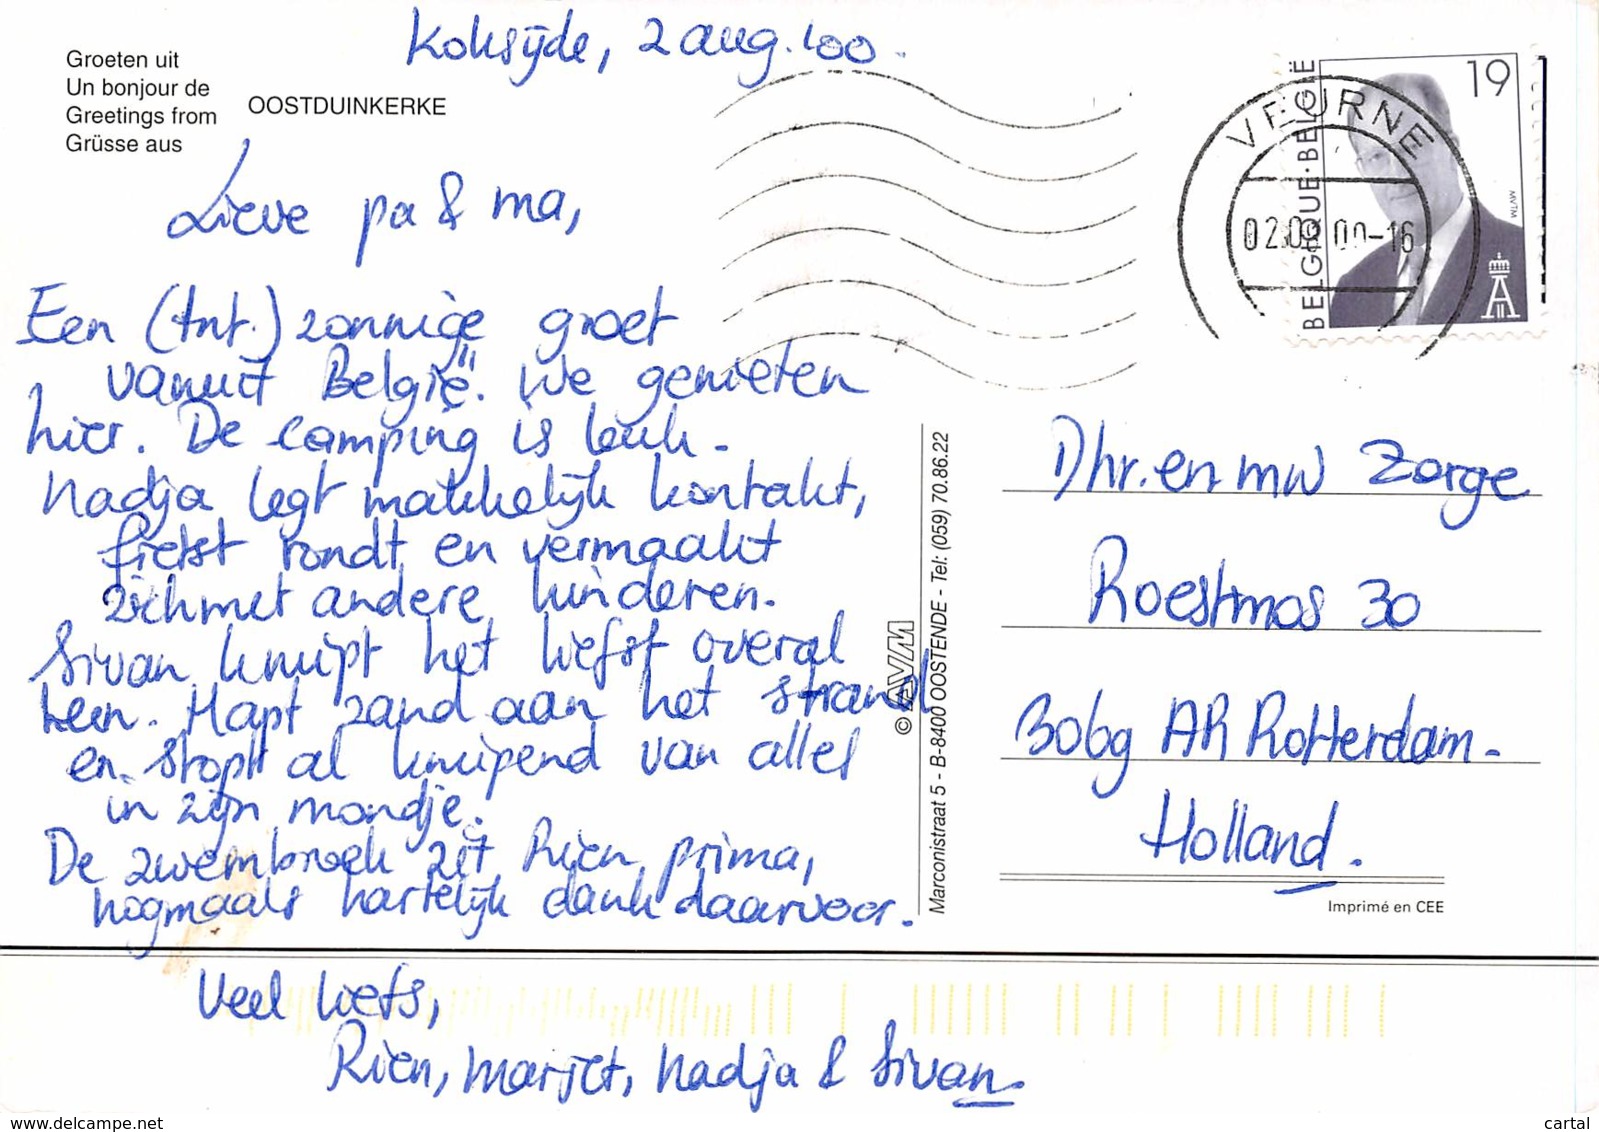 Koksijde, 2 aug. '00.
Groeten uit
Un bonjour de
Greetings from
Grüsse aus
OOSTDUINKERKE
Lieve pa & ma,
Een (Int.) zonnige groet
vanuit België. We genieten
hier. De camping is leuk.
Nadja legt makkelijk kontakt,
fietst rondt en vermaakt
zich met andere kinderen.
Sivan kruipt het liefst overal
heen. Hapt zand aan het strand
en stopt al kruipend van alles
in zijn mondje.
De zwembroek zit Rien prima,
nogmaals hartelijk dank daarvoor.
Veel liefs,
Rien, Marjet, Nadja & Sivan.
© AVM
Marconistraat 5 - B-8400 OOSTENDE - Tel: (059) 70.86.22
BELGIQUE·BELGIË
19
MVTM
VEURNE
02.08 00-16
Dhr. en mw Zorge
Roestmos 30
3069 AR Rotterdam-
Holland.
Imprimé en CEE
www.delcampe.net
cartal